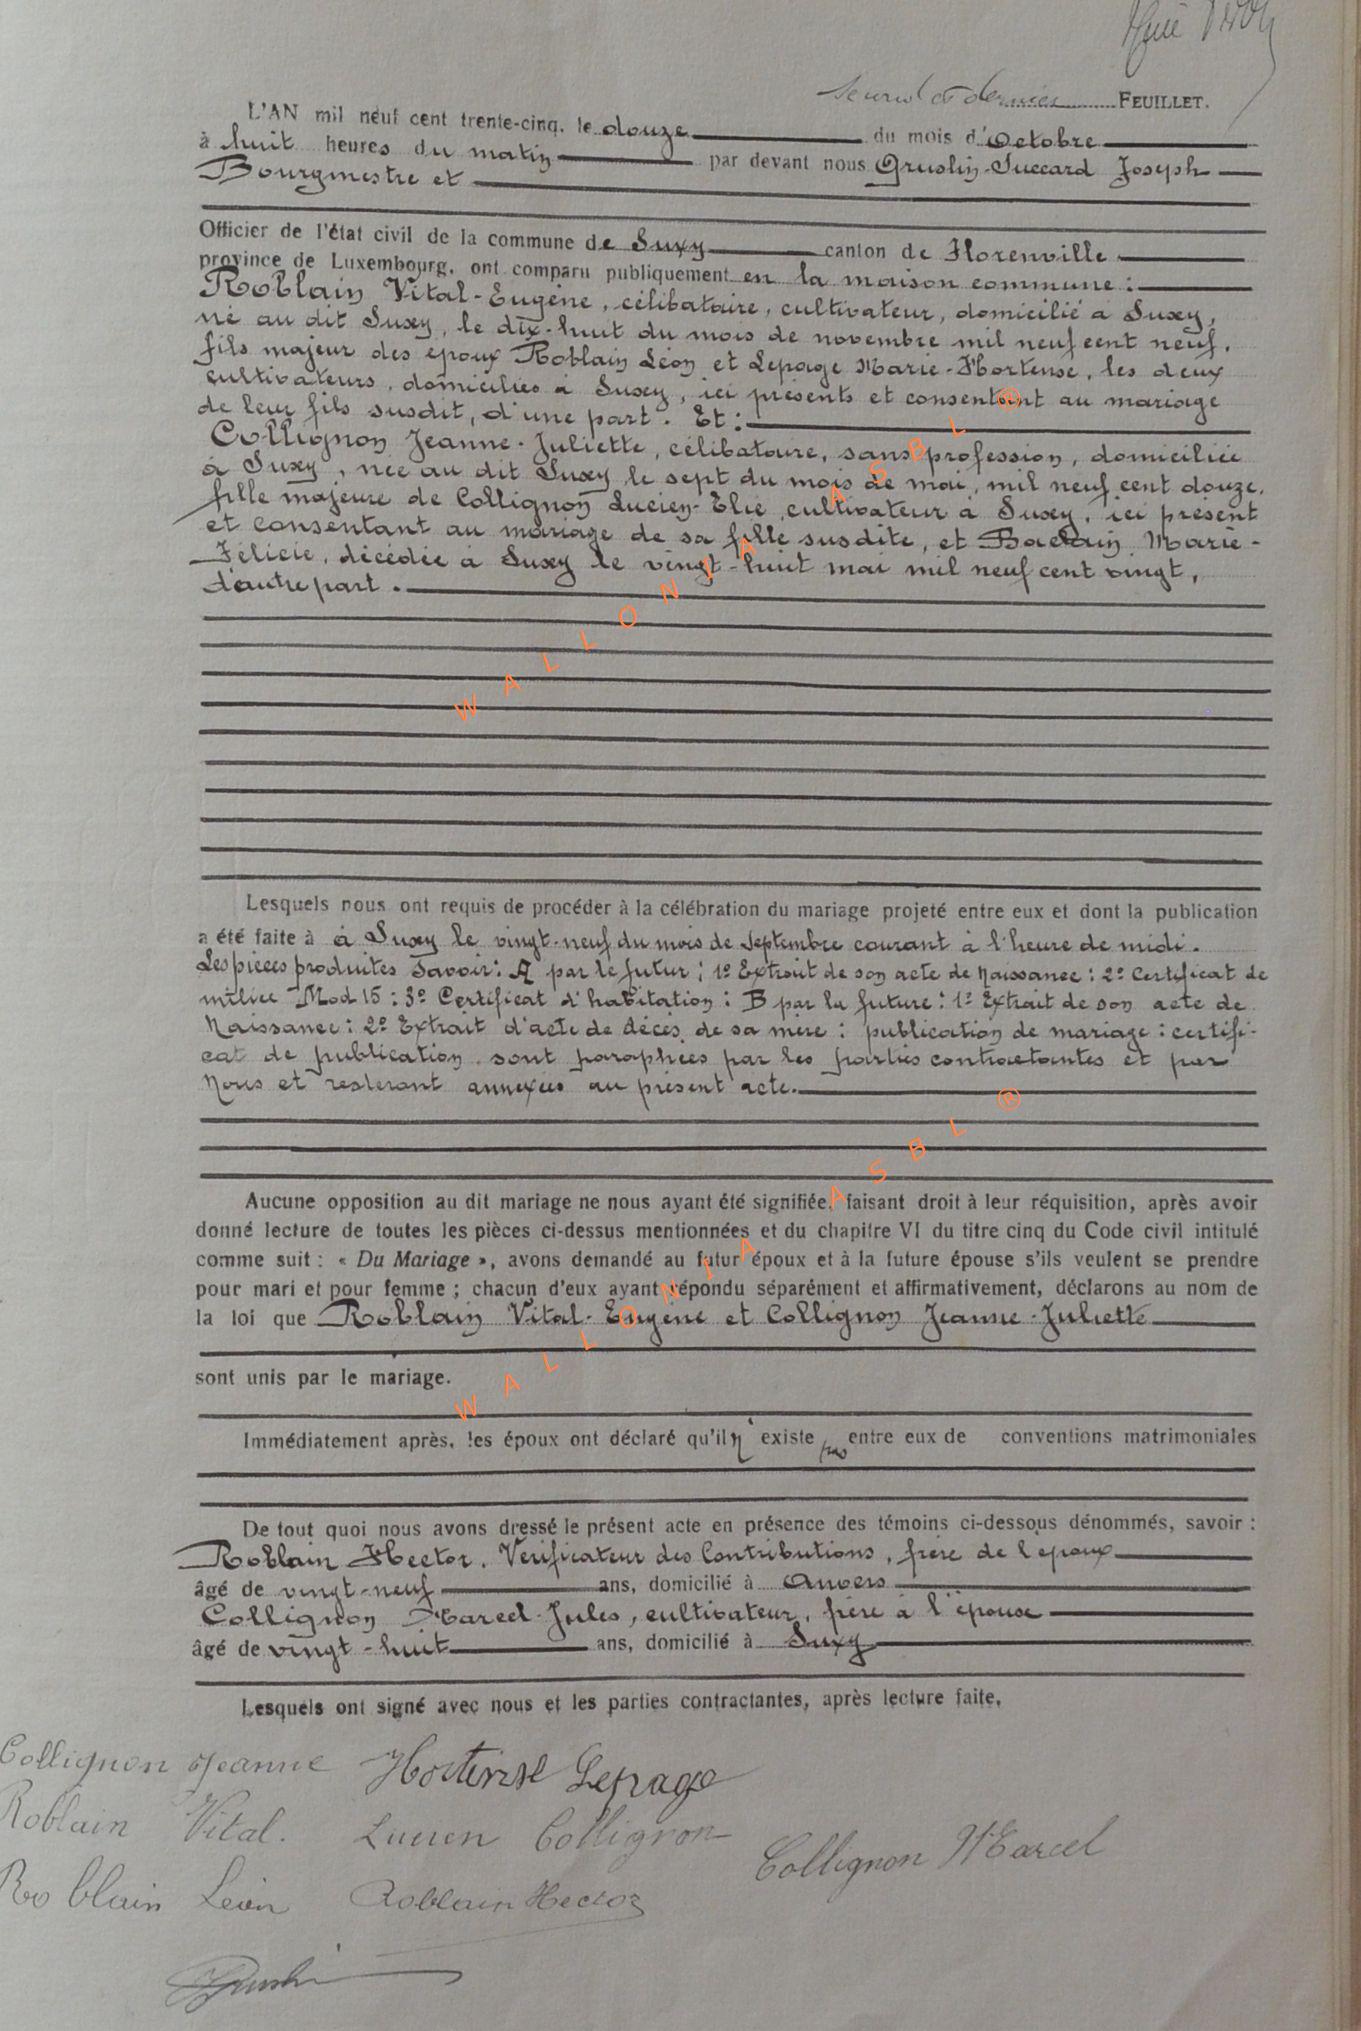 second et dernier FEUILLET.
L'AN mil neuf cent trente-cinq, le douze du mois d'Octobre
à huit heures du matin par devant nous Gruslin-Succard Joseph
Bourgmestre et
Officier de l'état civil de la commune de Suxy canton de Florenville
province de Luxembourg, ont comparu publiquement en la maison commune :
Roblain Vital-Eugène, célibataire, cultivateur, domicilié à Suxy,
né au dit Suxy, le dix-huit du mois de novembre mil neuf cent neuf,
fils majeur des époux Roblain Léon et Lepage Marie-Hortense, les deux
cultivateurs, domiciliés à Suxy, ici présents et consentant au mariage
de leur fils susdit, d'une part. Et :
Collignon Jeanne-Juliette, célibataire, sans profession, domiciliée
à Suxy, née au dit Suxy le sept du mois de mai, mil neuf cent douze,
fille majeure de Collignon Lucien-Elie, cultivateur à Suxy, ici présent
et consentant au mariage de sa fille susdite, et Marie-
Félicie, décédée à Suxy le vingt-huit mai mil neuf cent vingt,
d'autre part.
WALLONIA ASBL ®
Lesquels nous ont requis de procéder à la célébration du mariage projeté entre eux et dont la publication
a été faite à à Suxy le vingt-neuf du mois de Septembre courant à l'heure de midi.
Les pièces produites savoir : A par le futur : 1º Extrait de son acte de Naissance : 2º Certificat de
milice Mod 15 : 3º Certificat d'habitation : B par la future : 1º Extrait de son acte de
Naissance : 2º Extrait d'acte de décès de sa mère : publication de mariage : certifi-
cat de publication sont paraphées par les parties contractantes et par
Nous et resteront annexées au présent acte.
Aucune opposition au dit mariage ne nous ayant été signifiée, faisant droit à leur réquisition, après avoir
donné lecture de toutes les pièces ci-dessus mentionnées et du chapitre VI du titre cinq du Code civil intitulé
comme suit : « Du Mariage », avons demandé au futur époux et à la future épouse s'ils veulent se prendre
pour mari et pour femme ; chacun d'eux ayant répondu séparément et affirmativement, déclarons au nom de
la loi que Roblain Vital-Eugène et Collignon Jeanne-Juliette
WALLONIA ASBL ®
sont unis par le mariage.
Immédiatement après, les époux ont déclaré qu'il n'existe pas entre eux de conventions matrimoniales
De tout quoi nous avons dressé le présent acte en présence des témoins ci-dessous dénommés, savoir :
Roblain Hector, Vérificateur des Contributions, frère de l'époux
âgé de vingt-neuf ans, domicilié à Anvers
Collignon Marcel-Jules, cultivateur, frère à l'épouse
âgé de vingt-huit ans, domicilié à Suxy
Lesquels ont signé avec nous et les parties contractantes, après lecture faite,
Collignon Jeanne Hortense Lepage
Roblain Vital. Lucien Collignon
Collignon Marcel
Roblain Léon Roblain Hector